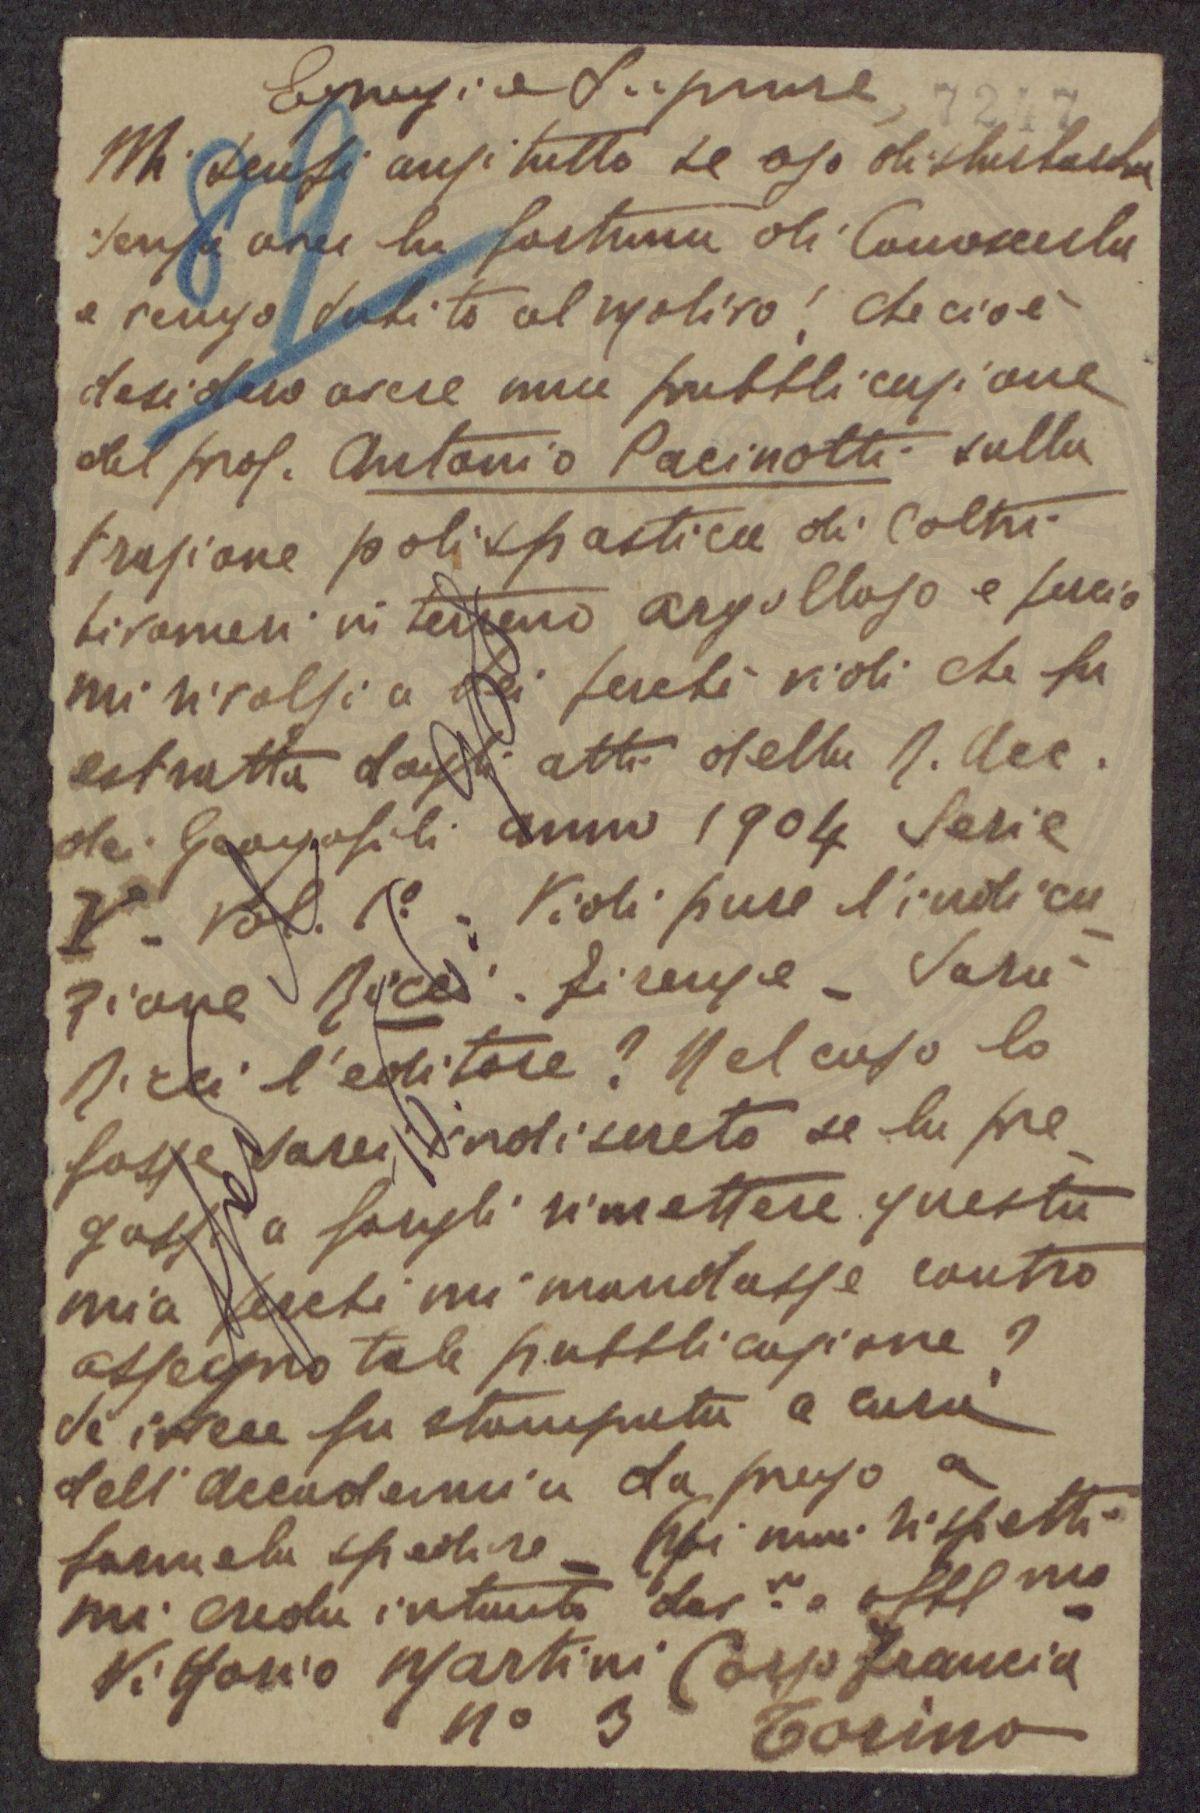 Egregio Signore,
7247
82
Mi scusi anzitutto se oso disturbarla
senza aver la fortuna di Conoscerla
e vengo subito al motivo! che cioè
desidero avere una pubblicazione
del prof. Antonio Pacinotti sulla
trazione polispastica di Coltri
tivomeri in terreno argolloso e perciò
mi rivolsi a Lei perchè vidi che fu
estratta dagli atti della R. Acc.
dei Georgofili anno 1904 Serie
Vª - Vol. 1º - Vidi pure l'indica
zione Ricci - Firenze - Sarà
Ricci l'editore? Nel caso lo
fosse sarei indiscreto se la pre
gassi a fargli rimettere questa
mia perchè mi mandasse contro
assegno tale pubblicazione?
Se invece fu stampata a cura
dell'Accademia la prego a
farmela spedire - Coi miei rispetti
mi creda intanto dev.mo obbl mo
Vittorio Martini Corso Francia
Nº 3 Torino